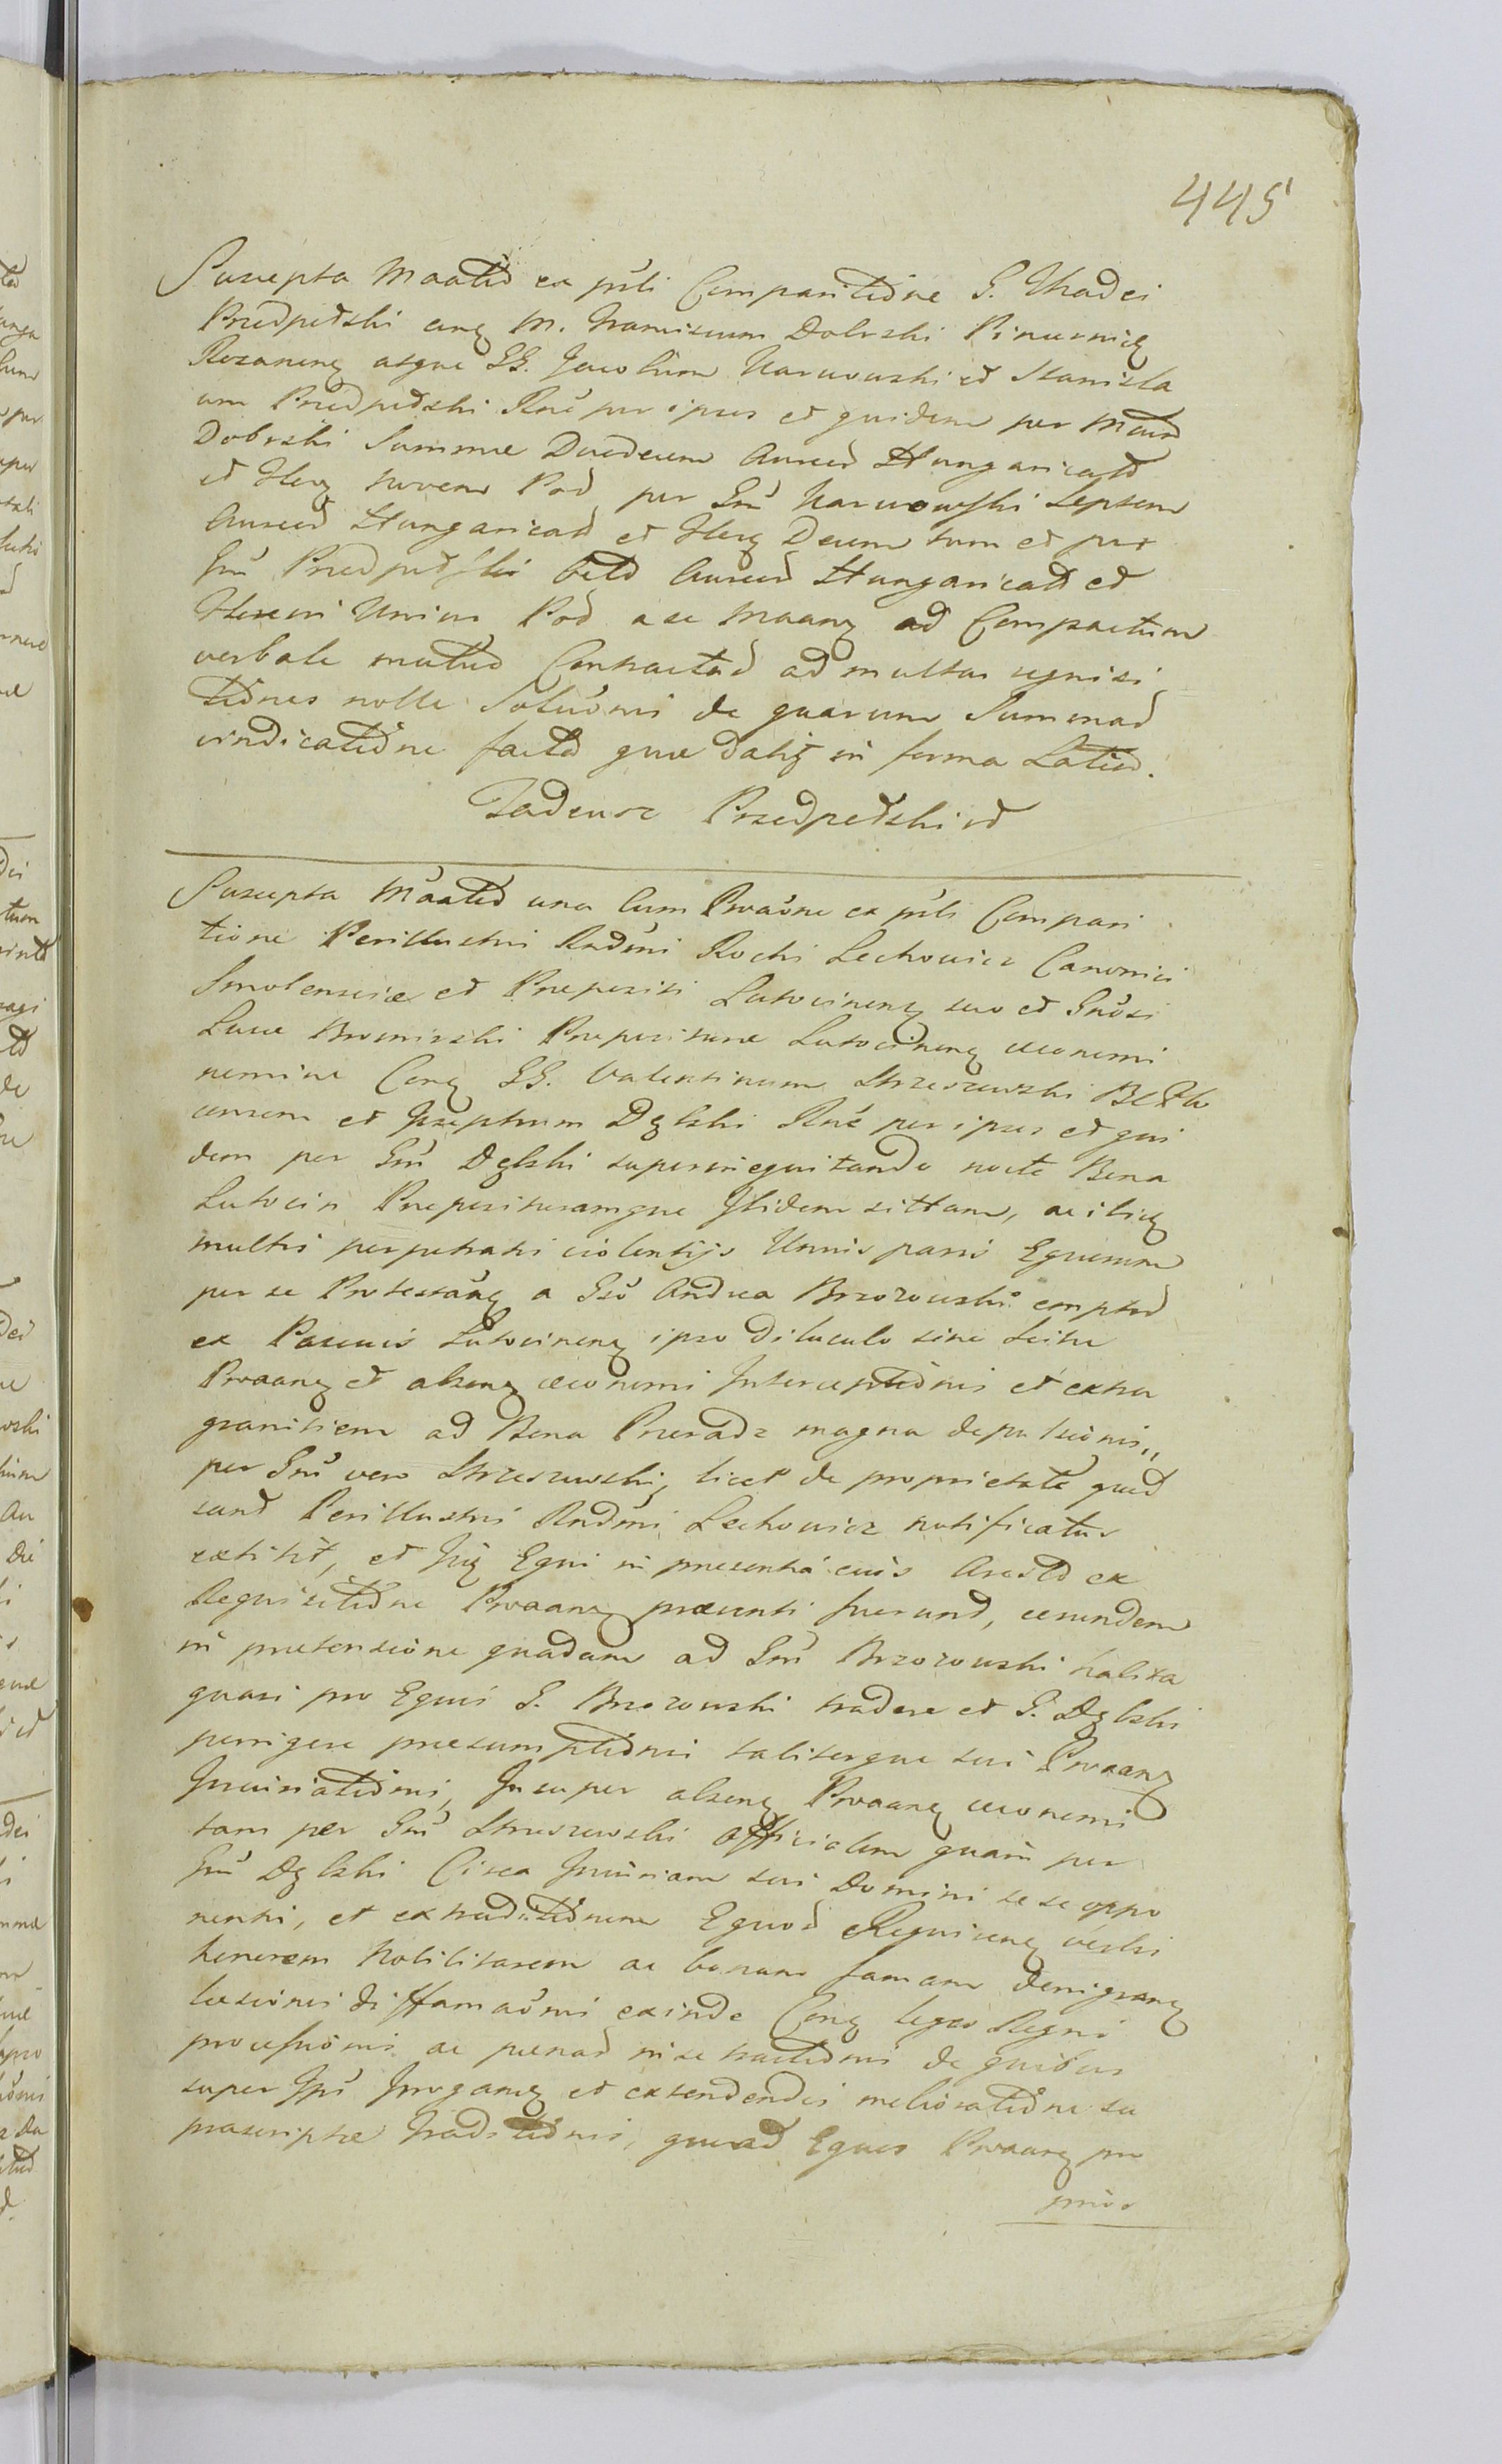 445
Suscepta Maatio ex pńti Comparitione G. Thadei
Przedpełski cong M. Franciscum Dobrski Pincernię
Rozanenę atque GG. Jacobum Narwowski et Stanisla
um Przedpełski Rne per ipsos et quidem per Mcum
Dobrski Summae Duodecim Aureor Hungaricalt
et flenę novem Pol per Gm Narwowski Septem
Aureor Hungarical et flenę Decem tum et per
Gm Przedpełski Octo Aureor Hungarical et
floreni Unius Pol a se Maanę ad Compactum
verbale mutuo Contractar ad multas reqnisi
tiones nolle Solučoni de quarum Summar
vindicatione facta quae dabit in forma Latior.
Tadeusz Przedpełski
Suscepta Maatio una Cum Prvaóne ex pńti Compari
tione Perillustri Rndmi Rochi Lechowicz Canonici
Smolensciae et Praepositi Lutocinenę suo et Gnosi
Lucae Bromirski Praepositurae Lutocinenę oeconomi
nomine Conę GG. Valentinum Strzeszewski
censem et Josephum Dębski Rne per ipsos et qui
dem per Gm Dębski superinequitando nocte Bona
Lutocin Praeposituramque Ibidem sittam, ac ibię
multis perpetratis violentijs Unnis paris Equorum
per se Protestanę a Gso Andrea Brzozowski emptor
ex Pascuis Lutocinenę ipso diluculo sine Scitu
Prvaanę et absenę oeconomi Interceptionis et extra
granitiem ad Bona Przeradz magna depulsionis,,
per Gm vero Strzeszewski, licet de proprietate quod
sunt Perillustri Rndmi Lechowicz notificatus
extitit, et Iię Equi in praesentia eius Aresto ex
Requisitione Prvaanę praeventi fuerunt, eosundem
in praetensione quadam ad Gm Brzozowski habita
quasi pro Equis G. Brzozowski tradere et G. Dębski
porrigere praesumptionis taliterque sui Prvaanę
Iniuriationis, Insuper absenę Prvaanę oeconomi
tam per Gm Strzeszewski Officialem quam per
Gm Dębski Circa Iniuriam sui Domini se se oppo
nentis, et extraditionem Equor Requirenę verbis
honorem Nobilitarem ac bonam famam denigranę
laesionis diffamaónis exinde Conę leges Regni
processionis ac poenar in se tractionis de quibus
super Ipsi Irrogandę et extendendis melioratione su
prascriptae Traditionis, quoad Equos Prvaanę pro
prios